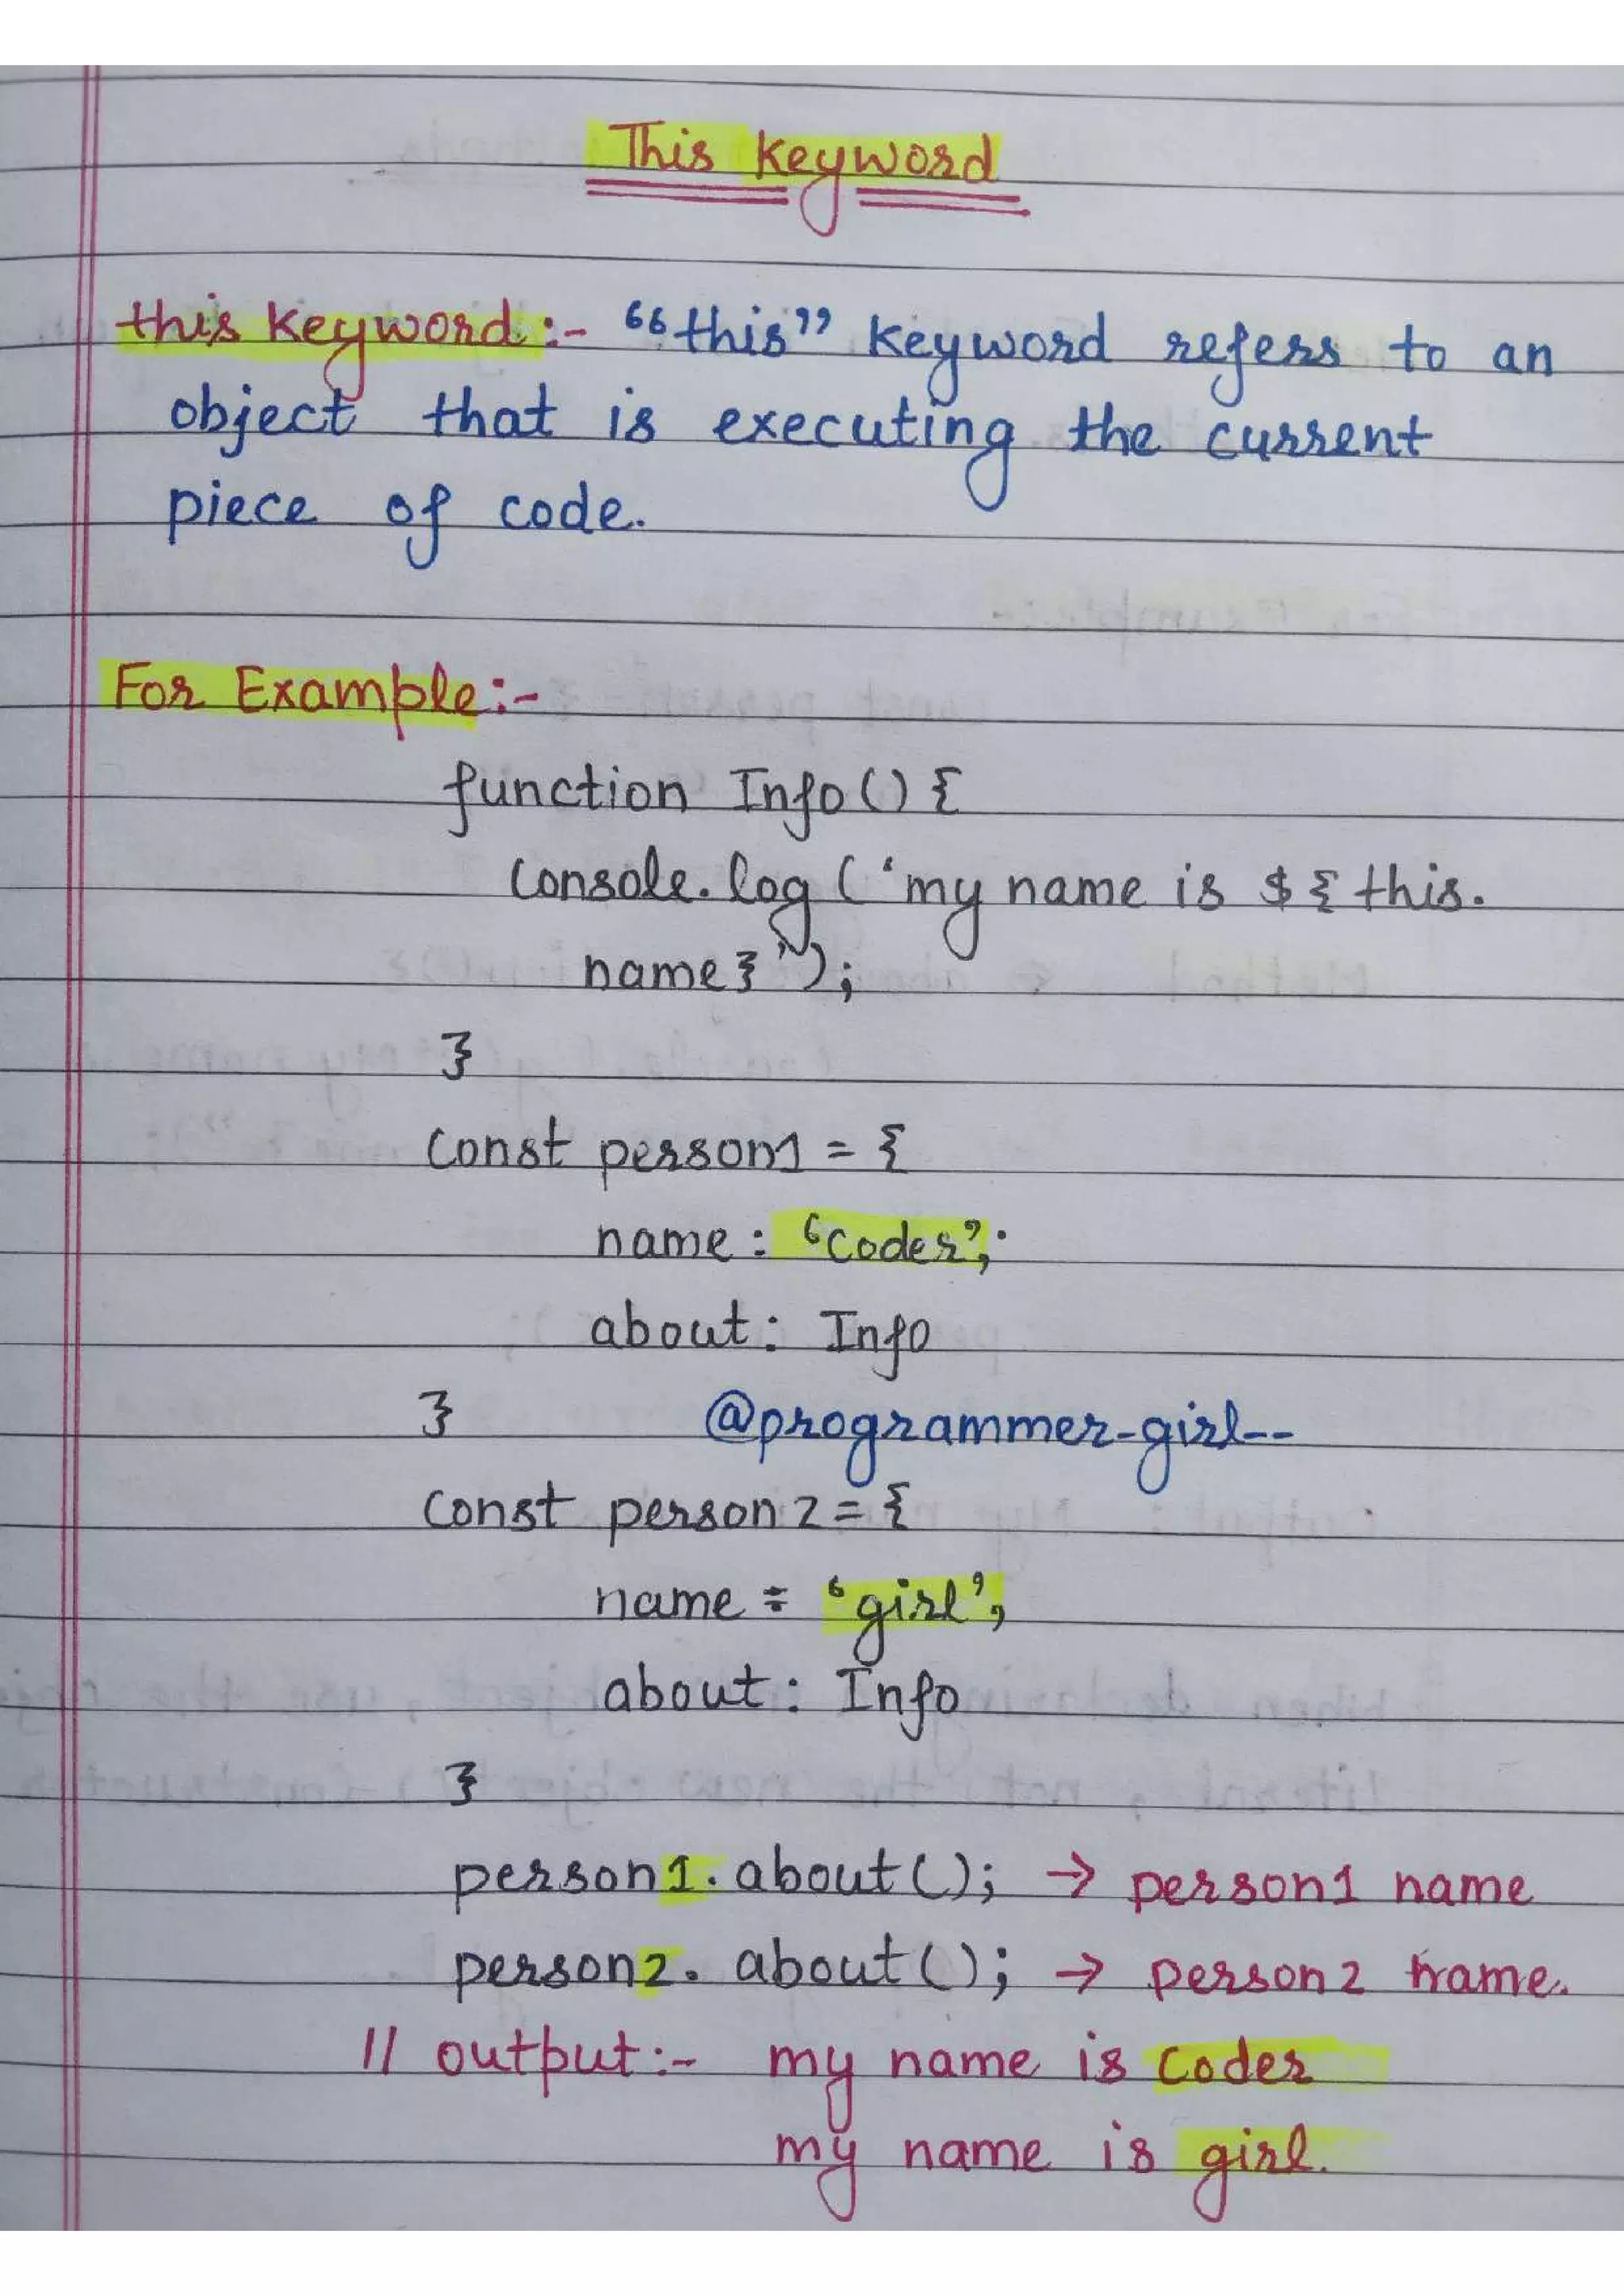 This Keyword
this Keyword :- “this” Keyword refers to an
object that is executing the current
piece of code.
For Example:-
function Info() {
Console.log ('my name is ${this.
name}');
}
Const person1 = {
name : 'Coder',
about : Info
}
@programmer-girl--
Const person2 = {
name = 'girl',
about : Info
}
person1. about(); → person1 name
person2. about(); → person2 name.
// output:- my name is Coder
my name is girl.